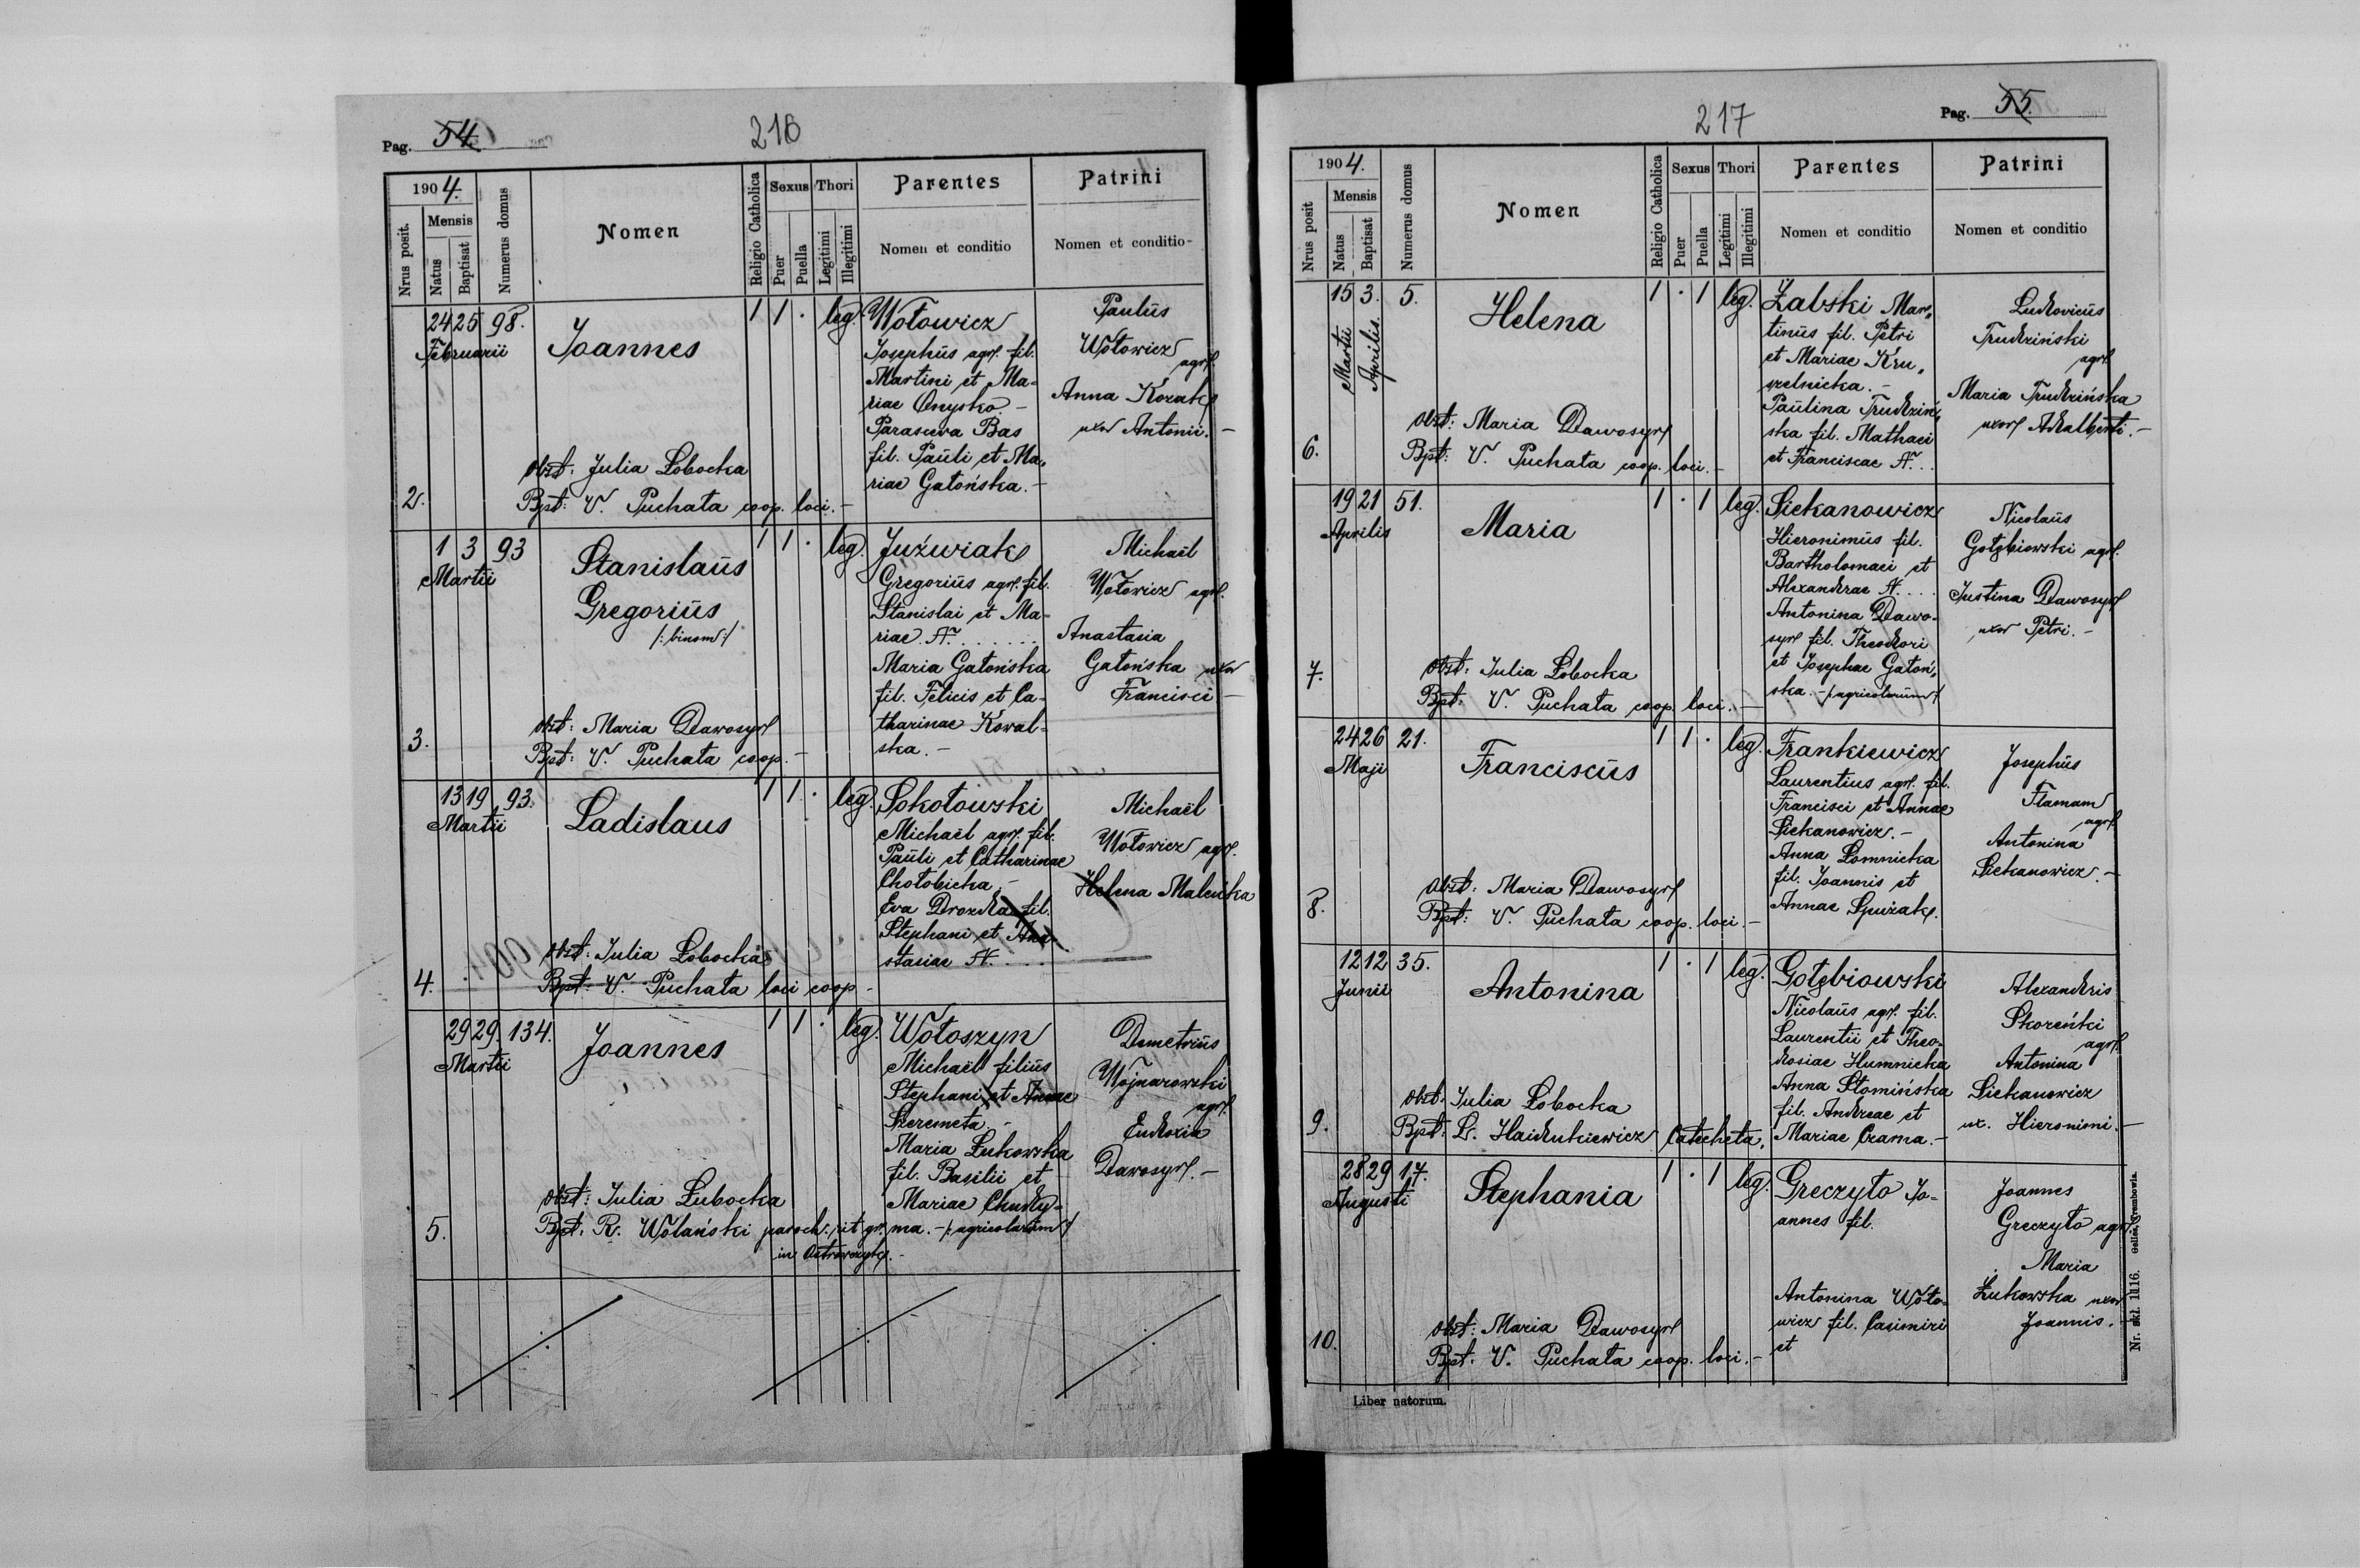 Pag. 54.
216
1904.
Nrus posit.
Mensis
Natus
Baptisat
Numerus domus
Nomen
Religio Catholica
Sexus
Puer
Puella
Thori
Legitimi
Illegitimi
Parentes
Nomen et conditio
Patrini
Nomen et conditio
2.
24 25 98.
Februarii
Joannes
1 1 · leg.
Wołowicz
Josephus agr. fil.
Martini et Ma-
riae Onysko. -
Parasceva Bas
fil. Pauli et Ma-
riae Gatońska. -
Paulus
Wołowicz
agr.
Anna Kozak
uxor Antonii. -
obst: Julia Łobocka
Bpt: V. Puchata coop. loci. -
3.
1 3 93
Martii
Stanislaus
Gregorius
/: binom :/
1 1 · leg.
Juźwiak
Gregorius agr. fil.
Stanislai et Ma-
riae N. . . . . .
Maria Gatońska
fil. Felicis et Ca-
tharinae Kowal-
ska. -
Michaël
Wołowicz agr.
Anastasia
Gatońska uxor
Francisci -
obst: Maria Dawosyr
Bpt: V. Puchata coop. -
4.
13 19 93.
Martii
Ladislaus
1 1 · leg.
Sokołowski
Michaël agr. fil.
Pauli et Catharinae
Chołobicka. -
Eva Drozda fil.
Stephani et Ana-
stasiae N. . . .
Michaël
Wołowicz agr.
Helena Malecka
obst: Julia Łobocka
Bpt: V. Puchata loci coop -
5.
29 29. 134.
Martii
Joannes
1 1 · leg.
Wołoszyn
Michaël filius
Stephani et Annae
Szeremeta. -
Maria Łukowska
fil. Basilii et
Mariae Chudy-
ma. - /: agricolarum :/
Demetrius
Wojnarowski
agr.
Eudoxia
Dawosyr. -
obst: Julia Łubocka
Bpt. R. Wolański paroch. rit gr.
in Ostrowczyk. -
Pag. 55.
217
1904.
Nrus posit
Mensis
Natus
Baptisat
Numerus domus
Nomen
Religio Catholica
Sexus
Puer
Puella
Thori
Legitimi
Illegitimi
Parentes
Nomen et conditio
Patrini
Nomen et conditio
6.
15 3. 5.
Martii
Aprilis.
Helena
1 · 1 leg.
Żabski Mar-
tinus fil. Petri
et Mariae Kru-
szelnicka. -
Paulina Trudziń-
ska fil. Mathaei
et Franciscae N. . .
Ludovicus
Trudziński
agr.
Maria Trudzińska
uxor Adalberti. -
obst: Maria Dawosyr
Bpt: V. Puchata coop. loci. -
7.
19 21 51.
Aprilis
Maria
1 · 1 leg.
Siekanowicz
Hieronimus fil.
Bartholomaei et
Alexandrae N. . . .
Antonina Dawo-
syr fil. Theodori
et Josephae Gatoń-
ska. - /: agricolarum :/
Nicolaus
Gołębiowski agr.
Justina Dawosyr
uxor Petri. -
obst: Julia Łobocka
Bpt: V. Puchata coop. loci. -
8.
24 26 21.
Maji
Franciscus
1 1 · leg.
Frankiewicz
Laurentius agr. fil.
Francisci et Annae
Siekanowicz. -
Anna Łomnicka
fil. Joannis et
Annae Spiżak.
Josephus
Flaman
agr.
Antonina
Siekanowicz. -
obst: Maria Dawosyr
Bpt: V. Puchata coop. loci. -
9.
12 12 35.
Junii
Antonina
1 · 1 leg.
Gołębiowski
Nicolaus agr. fil.
Laurentii et Theo-
dosiae Humnicka
Anna Słomińska
fil. Andreae et
Mariae Czarna. -
Alexandris
Skoreńki
agr.
Antonina
Siekanowicz
ux. Hieronimi. -
obst. Julia Łobocka
Bpt: L. Haidukiewicz Catecheta,
10.
28 29 17.
Augusti
Stephania
1 · 1 leg.
Greczyło Jo-
annes fil.
Antonina Woło-
wicz fil. Casimiri
et
Joannes
Greczyło agr.
Maria
Łukowska uxor
Joannis. -
obst: Maria Dawosyr
Bpt: V. Puchata coop. loci. -
Liber natorum.
Nr. skł. 1116.